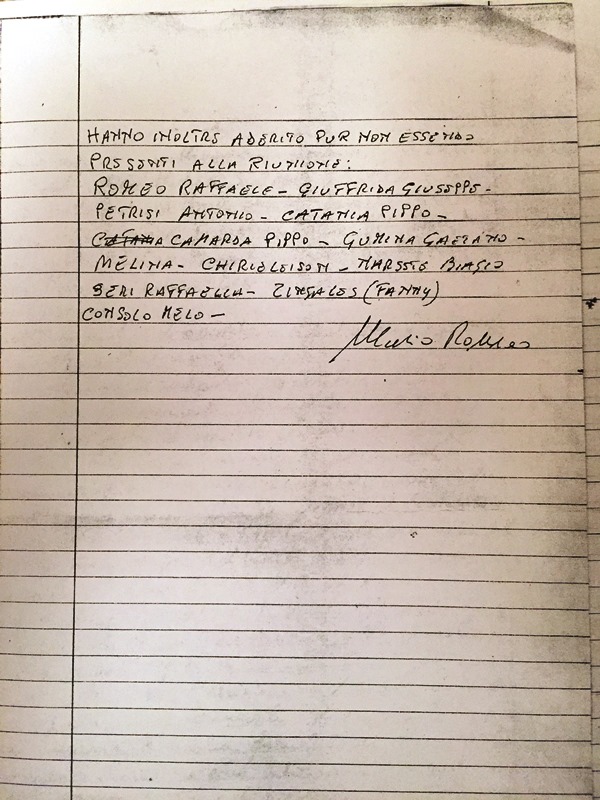 HANNO INOLTRE ADERITO PUR NON ESSENDO
PRESENTI ALLA RIUNIONE:
ROMEO RAFFAELE - GIUFFRIDA GIUSEPPE -
PETRISI ANTONIO - CATANIA PIPPO -
CAMARDA PIPPO - GUMINA GAETANO -
MELINA - CHIRIELEISON - BIAGIO
SERI RAFFAELLA - ZINGALES (FANNY)
CONSOLO MELO -